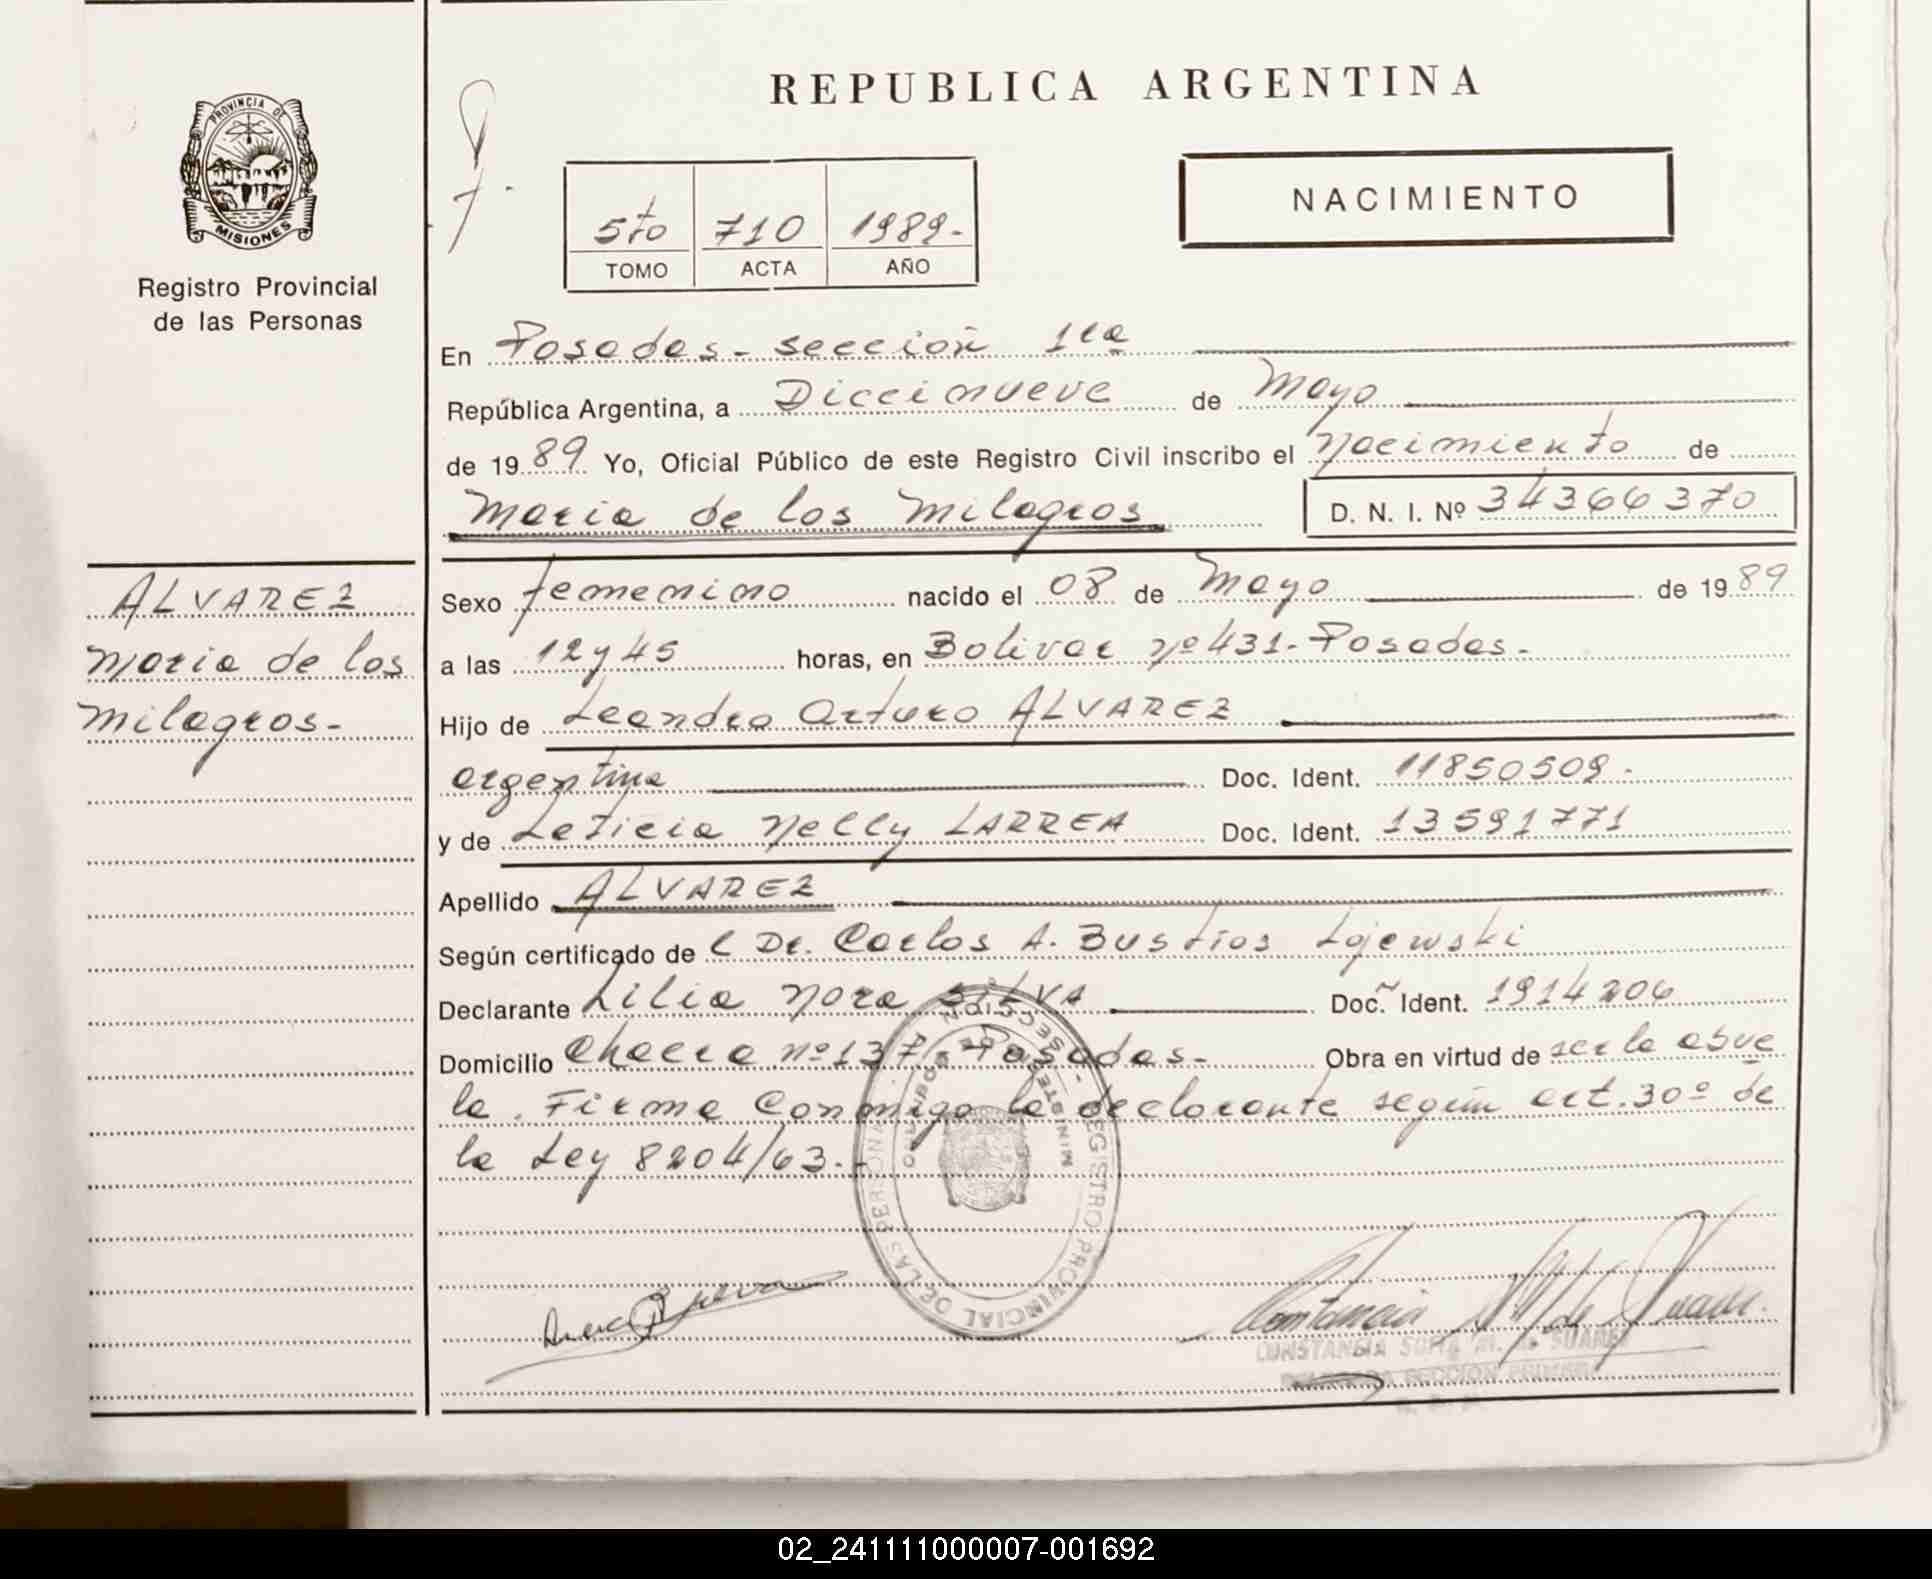 REPUBLICA ARGENTINA
PROVINCIA DE
MISIONES
Registro Provincial
de las Personas
NACIMIENTO
5to 710 1989.-
TOMO ACTA AÑO
En Posadas - sección 1ra
República Argentina, a Diecinueve de Mayo
de 1989 Yo, Oficial Público de este Registro Civil inscribo el Nacimiento de
Maria de los Milagros D. N. I. Nº 34366370
ALVAREZ
Maria de los
Milagros.-
Sexo femenino nacido el 08 de Mayo de 1989
a las 12 y 45 horas, en Bolivar nº 431 - Posadas.-
Hijo de Leandro Arturo ALVAREZ
argentina Doc. Ident. 11850509.-
y de Leticia Nelly LARREA Doc. Ident. 13591771
Apellido ALVAREZ
Según certificado de l Dr. Carlos A. Bustios Lojewski
Declarante Lilia Nora SILVA Doc. Ident. 1914206
Domicilio Chacra nº 137 - Posadas.- Obra en virtud de ser la abue
la. Firma Conmigo la declarante según art. 30º de
la Ley 8204/63.-
REGISTRO PROVINCIAL DE LAS PERSONAS
SECCION
CONSTANCIA SUAREZ
SECCION PRIMERA
02_241111000007-001692